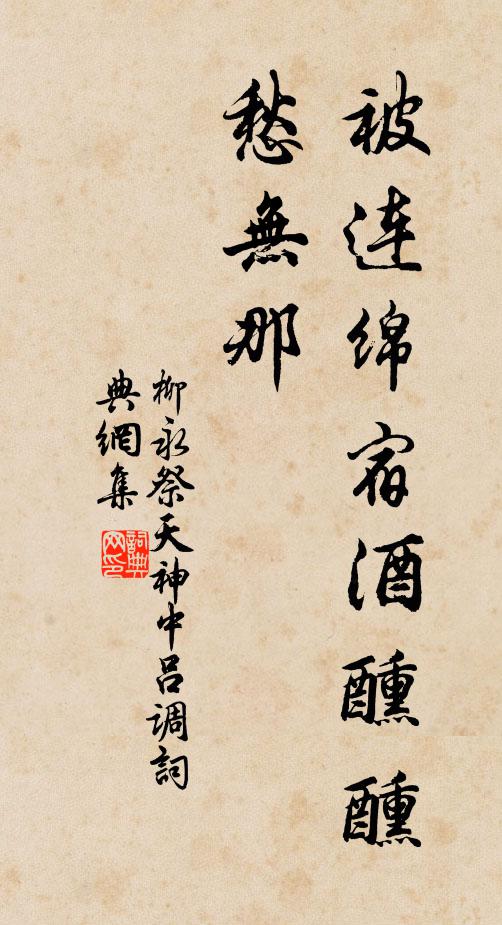 被连绵宿酒醺醺
愁無那
柳永祭天神中吕调词
典網集
詞典
网印